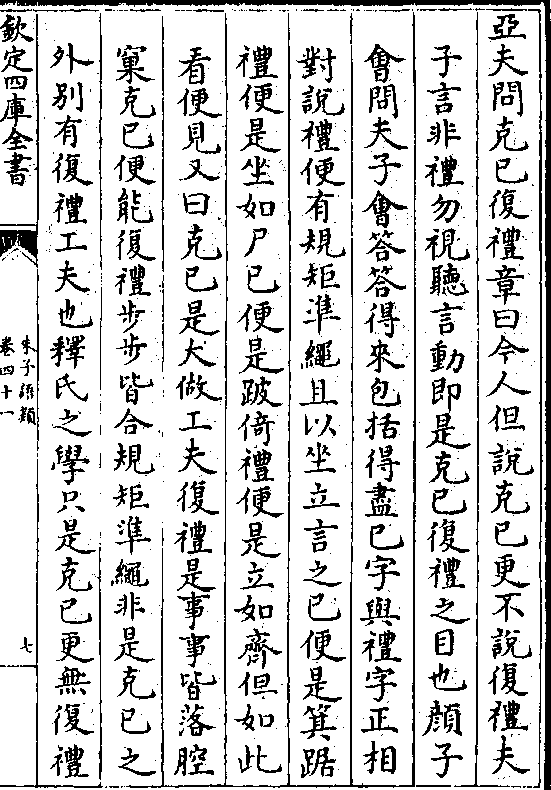 亞夫問克已復禮章曰今人但說克已更不說復禮夫
子言非禮勿視聽言動即是克已復禮之目也顔子
會問夫子會答答得來包括得盡已字與禮字正相
對說禮便有規矩準繩且以坐立言之已便是箕踞
禮便是坐如尸已便是跛倚禮便是立如齊但如此
看便見又曰克已是大做工夫復禮是事事皆落腔
窠克已便能復禮步步皆合規矩準繩非是克已之
外别有復禮工夫也釋氏之學只是克已更無復禮
欽定四庫全書
朱子語類
卷四十一
七